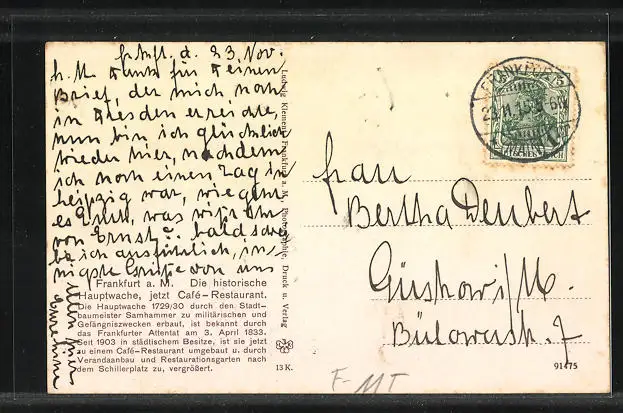 Frkft. d. 23. Nov.
L. M. Dank für Deinen
Brief, der mich noch
in Dresden erreichte,
nun bin ich glücklich
wieder hier, nachdem
ich noch einen Tag in
Leipzig war, wie geht
es Euch, was wißt Ihr
von Ernst? bald schrei
be ich ausführlich, in,
nigste Grüße von uns
Frankfurt a. M. Die historische
Hauptwache, jetzt Café-Restaurant.
Die Hauptwache 1729/30 durch den Stadt-
baumeister Samhammer zu militärischen und
Gefängniszwecken erbaut, ist bekannt durch
das Frankfurter Attentat am 3. April 1833.
Seit 1903 in städtischem Besitze, ist sie jetzt
zu einem Café-Restaurant umgebaut u. durch
Verandaanbau und Restaurationsgarten nach
dem Schillerplatz zu, vergrößert.
13 K.
Ludwig Klement, Frankfurt a. M., Photographie, Druck u. Verlag
FRANKFURT
DEUTSCHES REICH
Frau
Bertha Deubert
Güstrow i/M.
Bülowstr. 7
91475
F-MT